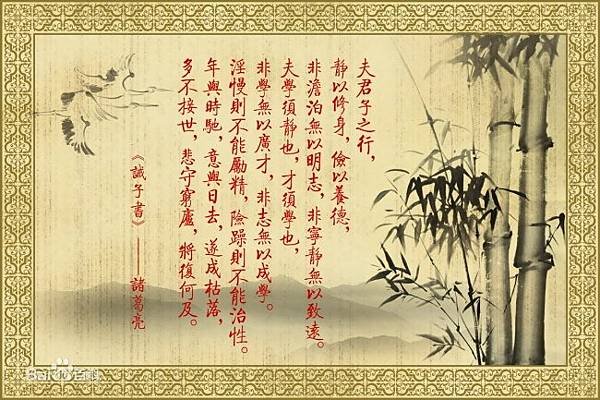 夫君子之行，
靜以修身，儉以養德，
非澹泊無以明志，非寧靜無以致遠。
夫學須靜也，才須學也，
非學無以廣才，非志無以成學。
淫慢則不能勵精，險躁則不能治性。
年與時馳，意與日去，遂成枯落，
多不接世，悲守窮廬，將復何及。
《誡子書》——諸葛亮
Bai百科